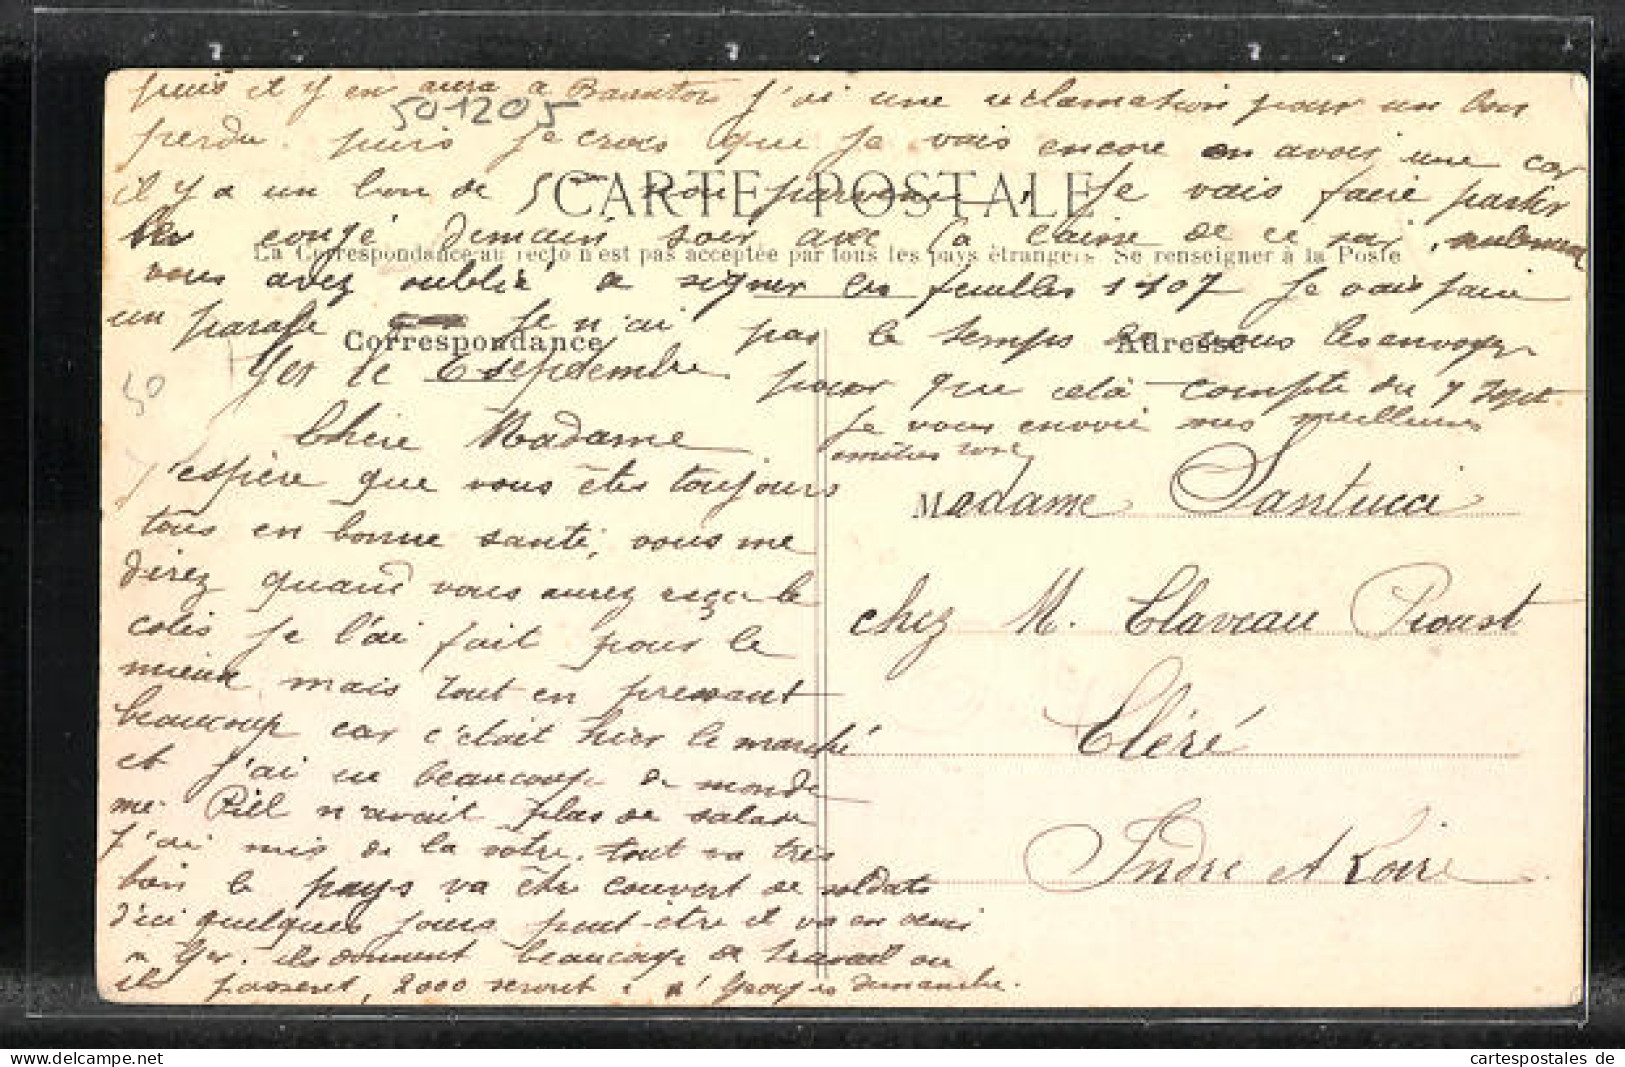 puis il y en aura a J'ai une reclamation pour un bon
501205
perdu. puis je crois que je vais encore en avoir une car
il y a un bon de 5 non parvenu. Je vais faire partir
CARTE POSTALE
le congé demain soir avec la caisse de ce soir, seulement
La Correspondance au recto n'est pas acceptée par tous les pays étrangers Se renseigner à la Poste
vous avez oublié de signer les feuilles 1107 Je vais faire
un parafe je n'ai pas le temps de vous les envoyer
Correspondance
Adresse
Ger le 6 septembre. pour que celà compte du 7 Sept
50
Je vous envoie mes meilleures
amitiés
Chère Madame
J'espère que vous êtes toujours
tous en bonne santé, vous me
direz quand vous aurez reçu le
colis je l'ai fait pour le
mieux, mais tout en pressant
beaucoup car c'était hier le marché
et j'ai eu beaucoup de monde
me n'avait plus de salade
J'ai mis de la votre. tout va très
bien le pays va être couvert de soldats
d'ici quelques jours peut-être il va en venir
a Ger. ils donnent beaucoup de travail ou
ils passeront, 2000 seront à Georges dimanche.
Madame Santucci
chez M. Claveau Proust
Cléré
Indre et Loire
cartespostales de